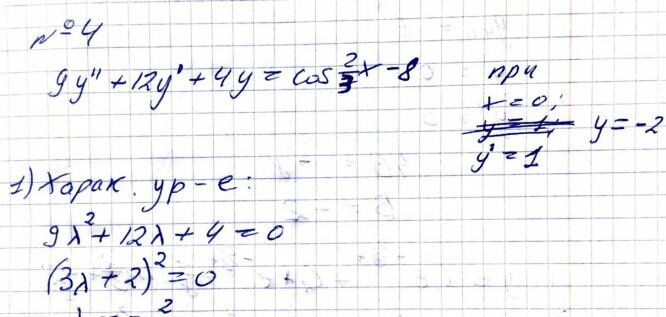 №4
9y" + 12y' + 4y = cos 2/3 x - 8
при
x = 0;
y = -2
y' = 1
1) Харак. ур-е:
9λ² + 12λ + 4 = 0
(3λ + 2)² = 0